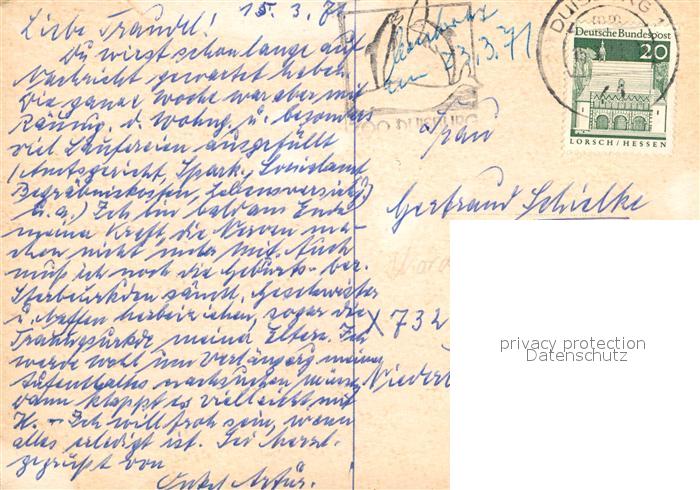 15. 3. 71
Liebe Traudel!
Du wirst schon lange auf
Nachricht gewartet haben.
Die ganze Woche war aber mit
Räumg. d. Wohng. u. besonders
viel Laufereien ausgefüllt
(Amtsgericht, Spark.,
Begräbniskosten, Lebensversich.)
u. a.) Ich bin bald am Ende
meine Kraft, die Nerven ma-
chen nicht mehr mit. Auch
muß ich noch die Geburts- bez.
Sterbeurkden sämtl. Geschwister
u. herbeiziehen, sogar die
Trauungsurkde meiner Eltern. Ich
werde wohl um Verlängerg meines
Aufenthaltes nachsuchen müssen,
dann klappt es vielleicht mit
K. – Ich will froh sein, wenn
alles erledigt ist. Sei herzl.
gegrüßt von
Onkel Artur.
am 23.3.71
ZOO DUISBURG
DUISBURG 1
Deutsche Bundespost
20
LORSCH / HESSEN
Frau
Gertraud Schielke
X 732
Nieder
privacy protection
Datenschutz